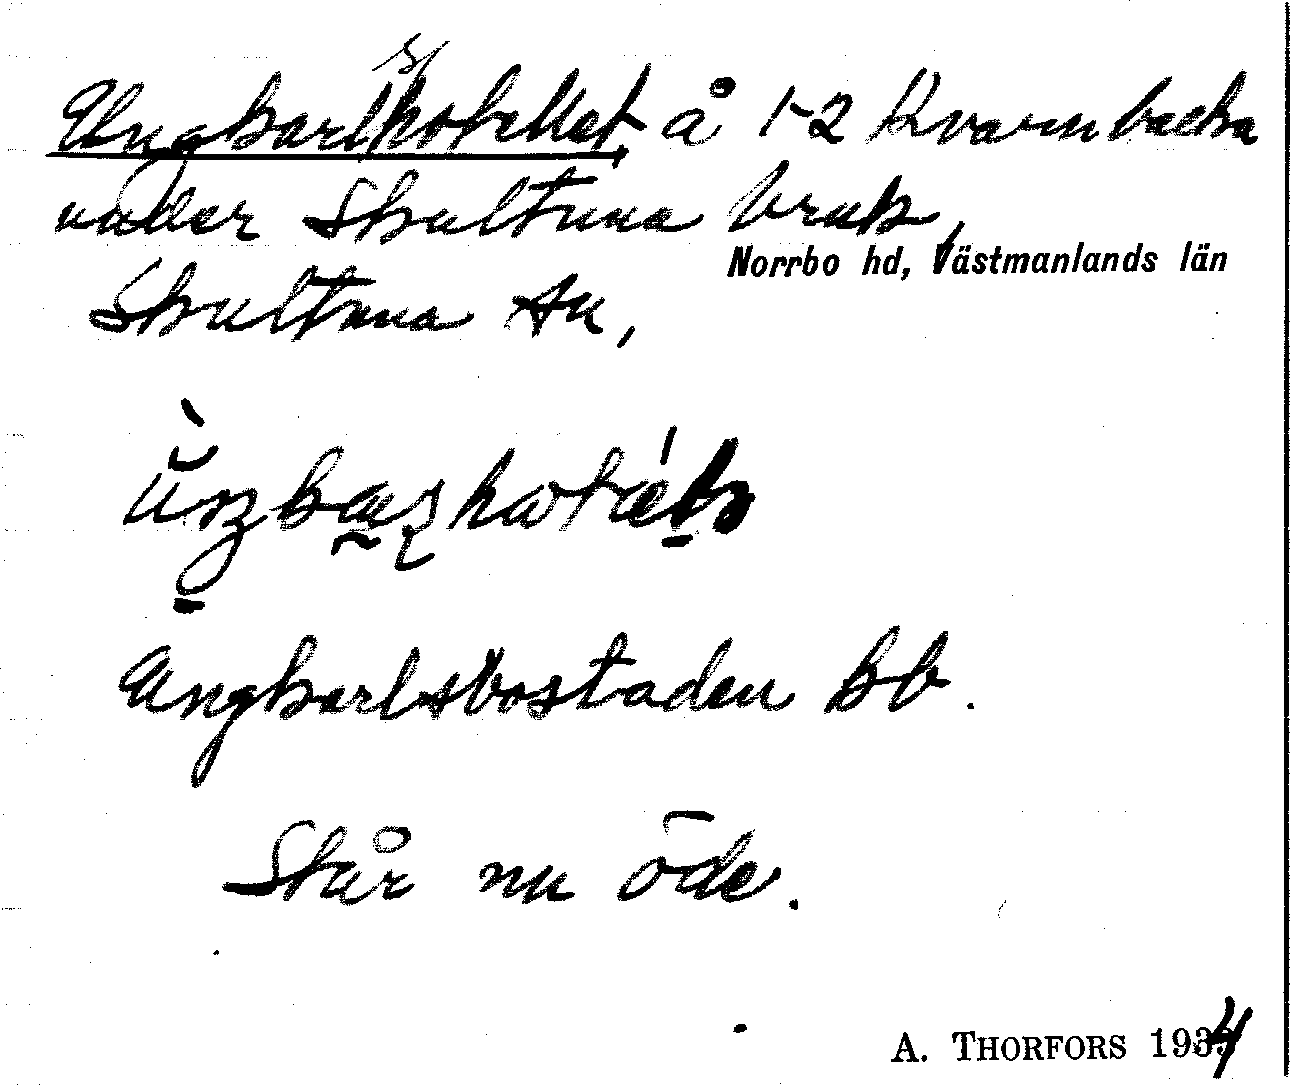 Ungkarlshotellet, å 1-2 Kvarnbacka
under Skultuna bruk,
Norrbo hd, Västmanlands län
Skultuna sn,
Ungkarlsbostaden Bb.
Står nu öde.
A. THORFORS 1934